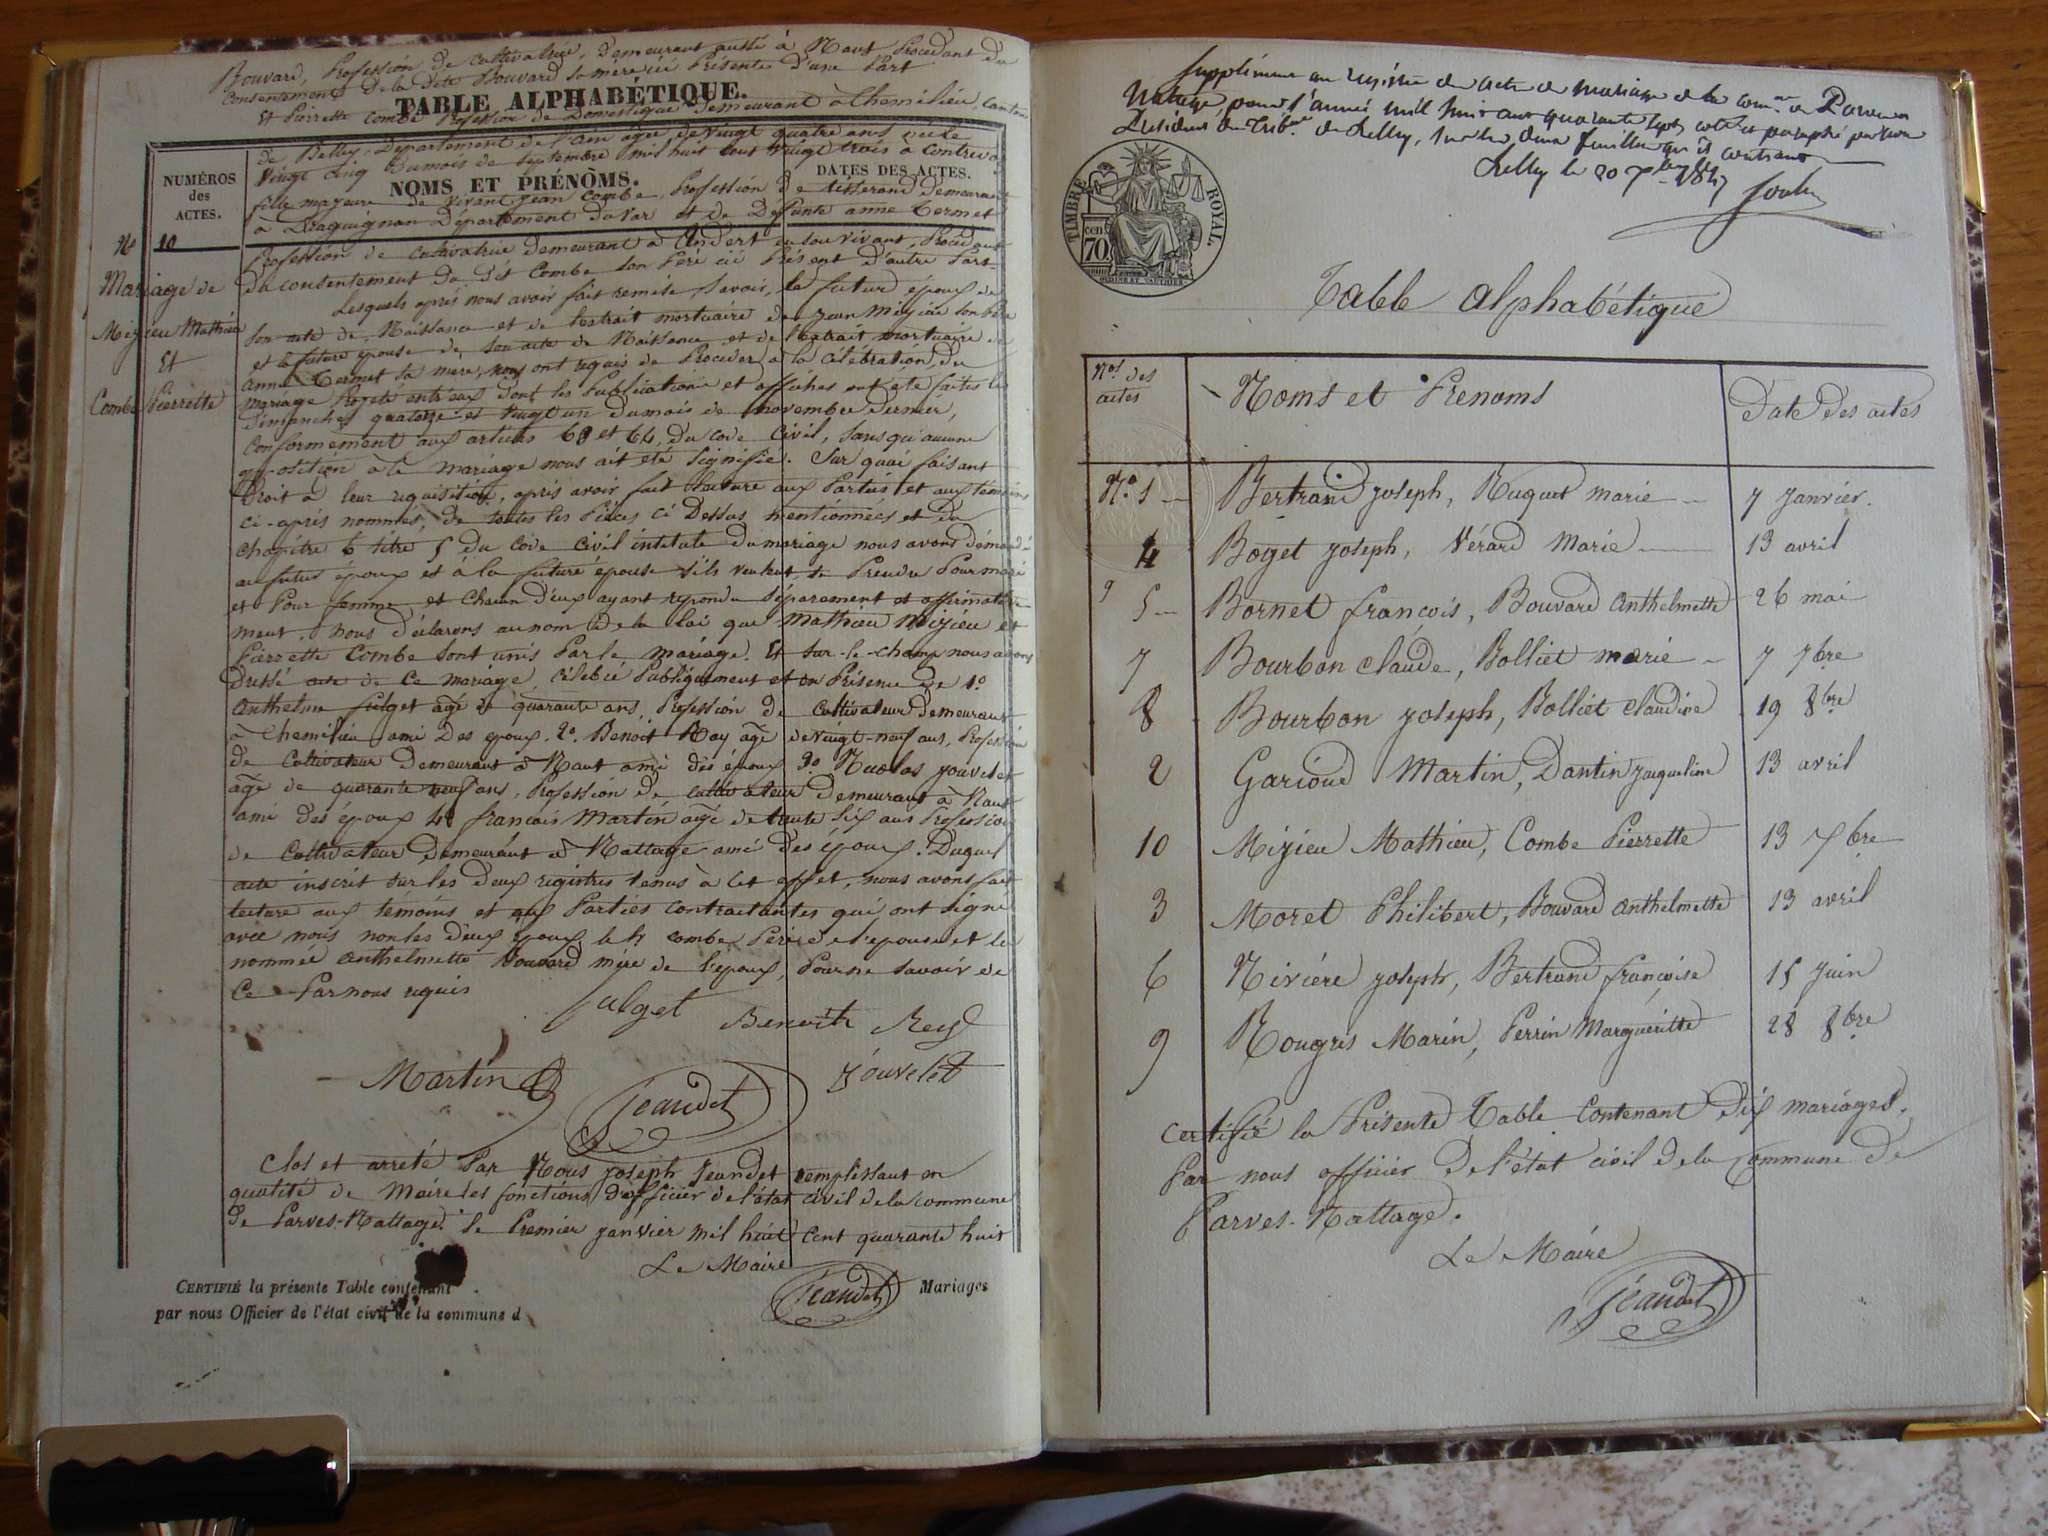 Bouvard, Profession de cultivatrice, demeurant aussi à Nant, Procédant du
Consentement de la dite Bouvard sa mère ici Présente d'une Part
TABLE ALPHABÉTIQUE.
Et Pierrette Combe Profession de Domestique demeurant à Chemilieu, Canton
de Belley, Département de l'ain agée de vingt quatre ans née le
vingt cinq du mois de septembre mil huit cent vingt trois à
NUMÉROS des ACTES.
NOMS ET PRÉNOMS.
DATES DES ACTES.
fille majeure de vivant jean Combe, Profession de tisserand demeurant
à Draguignan Département du var et de Défunte anne Termet
No 10
Profession de cultivatrice demeurant à Andert en son vivant, Procédant
Mariage de
du consentement du dit Combe son Père ici Présent d'autre Part
Lesquels après nous avoir fait remise, savoir, le futur époux de
Mizieu Mathieu
son acte de Naissance et de l'extrait mortuaire de jean Mizieu son Père
Et
et la future épouse de son acte de Naissance et de l'extrait mortuaire de
anne Termet sa mere, nous ont requis de Proceder à la célébration du
Combe Pierrette
mariage Projeté entr'eux dont les Publications et affiches ont été faites les
Dimanches quatorze et vingt un du mois de novembre dernier,
Conformément aux articles 63 et 64, du code Civil, sans qu'aucune
opposition à le mariage nous ait été signifié. Sur quoi faisant
Droit à leur requisition, après avoir fait lecture aux Parties et aux témoins
ci-après nommés, de toutes les Pièces ci Dessus mentionnées et du
chapitre 6 titre 5 du Code Civil intitulé du mariage nous avons démandé
au futur époux et à la future épouse s'ils veulent se Prendre Pour mari
et Pour femme, et chacun d'eux ayant repondu séparement et affirmative
ment. Nous déclarons au nom de la loi que Mathieu Mizieu et
Pierrette Combe sont unis Par le mariage. Et sur-le-champ nous avons
Dressé acte de ce mariage célébré Publiquement et en Présence de 1o
Anthelme fulget agé de quarante ans, Profession de Cultivateur Demeurant
à Chemilieu ami des époux. 2o. Benoit Rey agé de vingt-neuf ans, Profession
de Cultivateur Demeurant à Nant ami des époux 3o. Nicolas jouvelet
agé de quarante neuf ans, Profession de cultivateur Demeurant à Nant
ami des époux 4o françois Martin agé de trente six ans Profession
de Cultivateur Demeurant à Nattage ami des époux. Duquel
acte inscrit sur les deux registres tenus à cet effet, nous avons fait
lecture aux témoins et aux Parties contractantes qui ont signé
avec nous non les deux époux, le sr combe Père de l'epouse et la
nommée anthelmette Bouvard mère de l'époux, Pour ne savoir de
Ce Par nous requis
fulget
Benoith Rey
Martin
Jouvelet
Jeandet
Clos et arreté Par Nous joseph Jeandet remplissant en
qualité de Maire les fonctions d'officier de l'état civil de la commune
de Parves-Nattage. le Premier janvier mil huit cent quarante huit
Le Maire
CERTIFIÉ la présente Table contenant
Mariages
Jeandet
par nous Officier de l'état civil de la commune d
Supplément au registre des actes de mariage de la comne de Parves
Nattage, pour l'année mil huit cent quarante sept, coté et paraphé par nous
Président du Tribal de Belley, sur les deux feuilles qu'il contient
Belley le 20 7bre 1847
TIMBRE ROYAL.
cen 70
Table alphabétique
Nos des actes
Noms et Prenoms
Date des actes
No. 1 Bertrand joseph, Huguet marie 7 janvier.
4 Boget joseph, Vérard Marie 13 avril
5 Bornet françois, Bouvard anthelmette 26 mai
7 Bourbon claude, Bolliet marie 7 7bre
8 Bourbon joseph, Bolliet claudine 19 8bre
2 Garioud Martin, Dantin jacqueline 13 avril
10 Mizieu Mathieu, Combe Pierrette 13 Xbre
3 Moret Philibert, Bouvard anthelmette 13 avril
6 Nivière joseph, Bertrand françoise 15 juin
9 Rougris Marin, Perrin Marguéritte 28 8bre
certifié la Présente Table Contenant Dix mariages.
Par nous officier de l'état civil de la Commune de
Parves-Nattage.
Le Maire
Jeandet